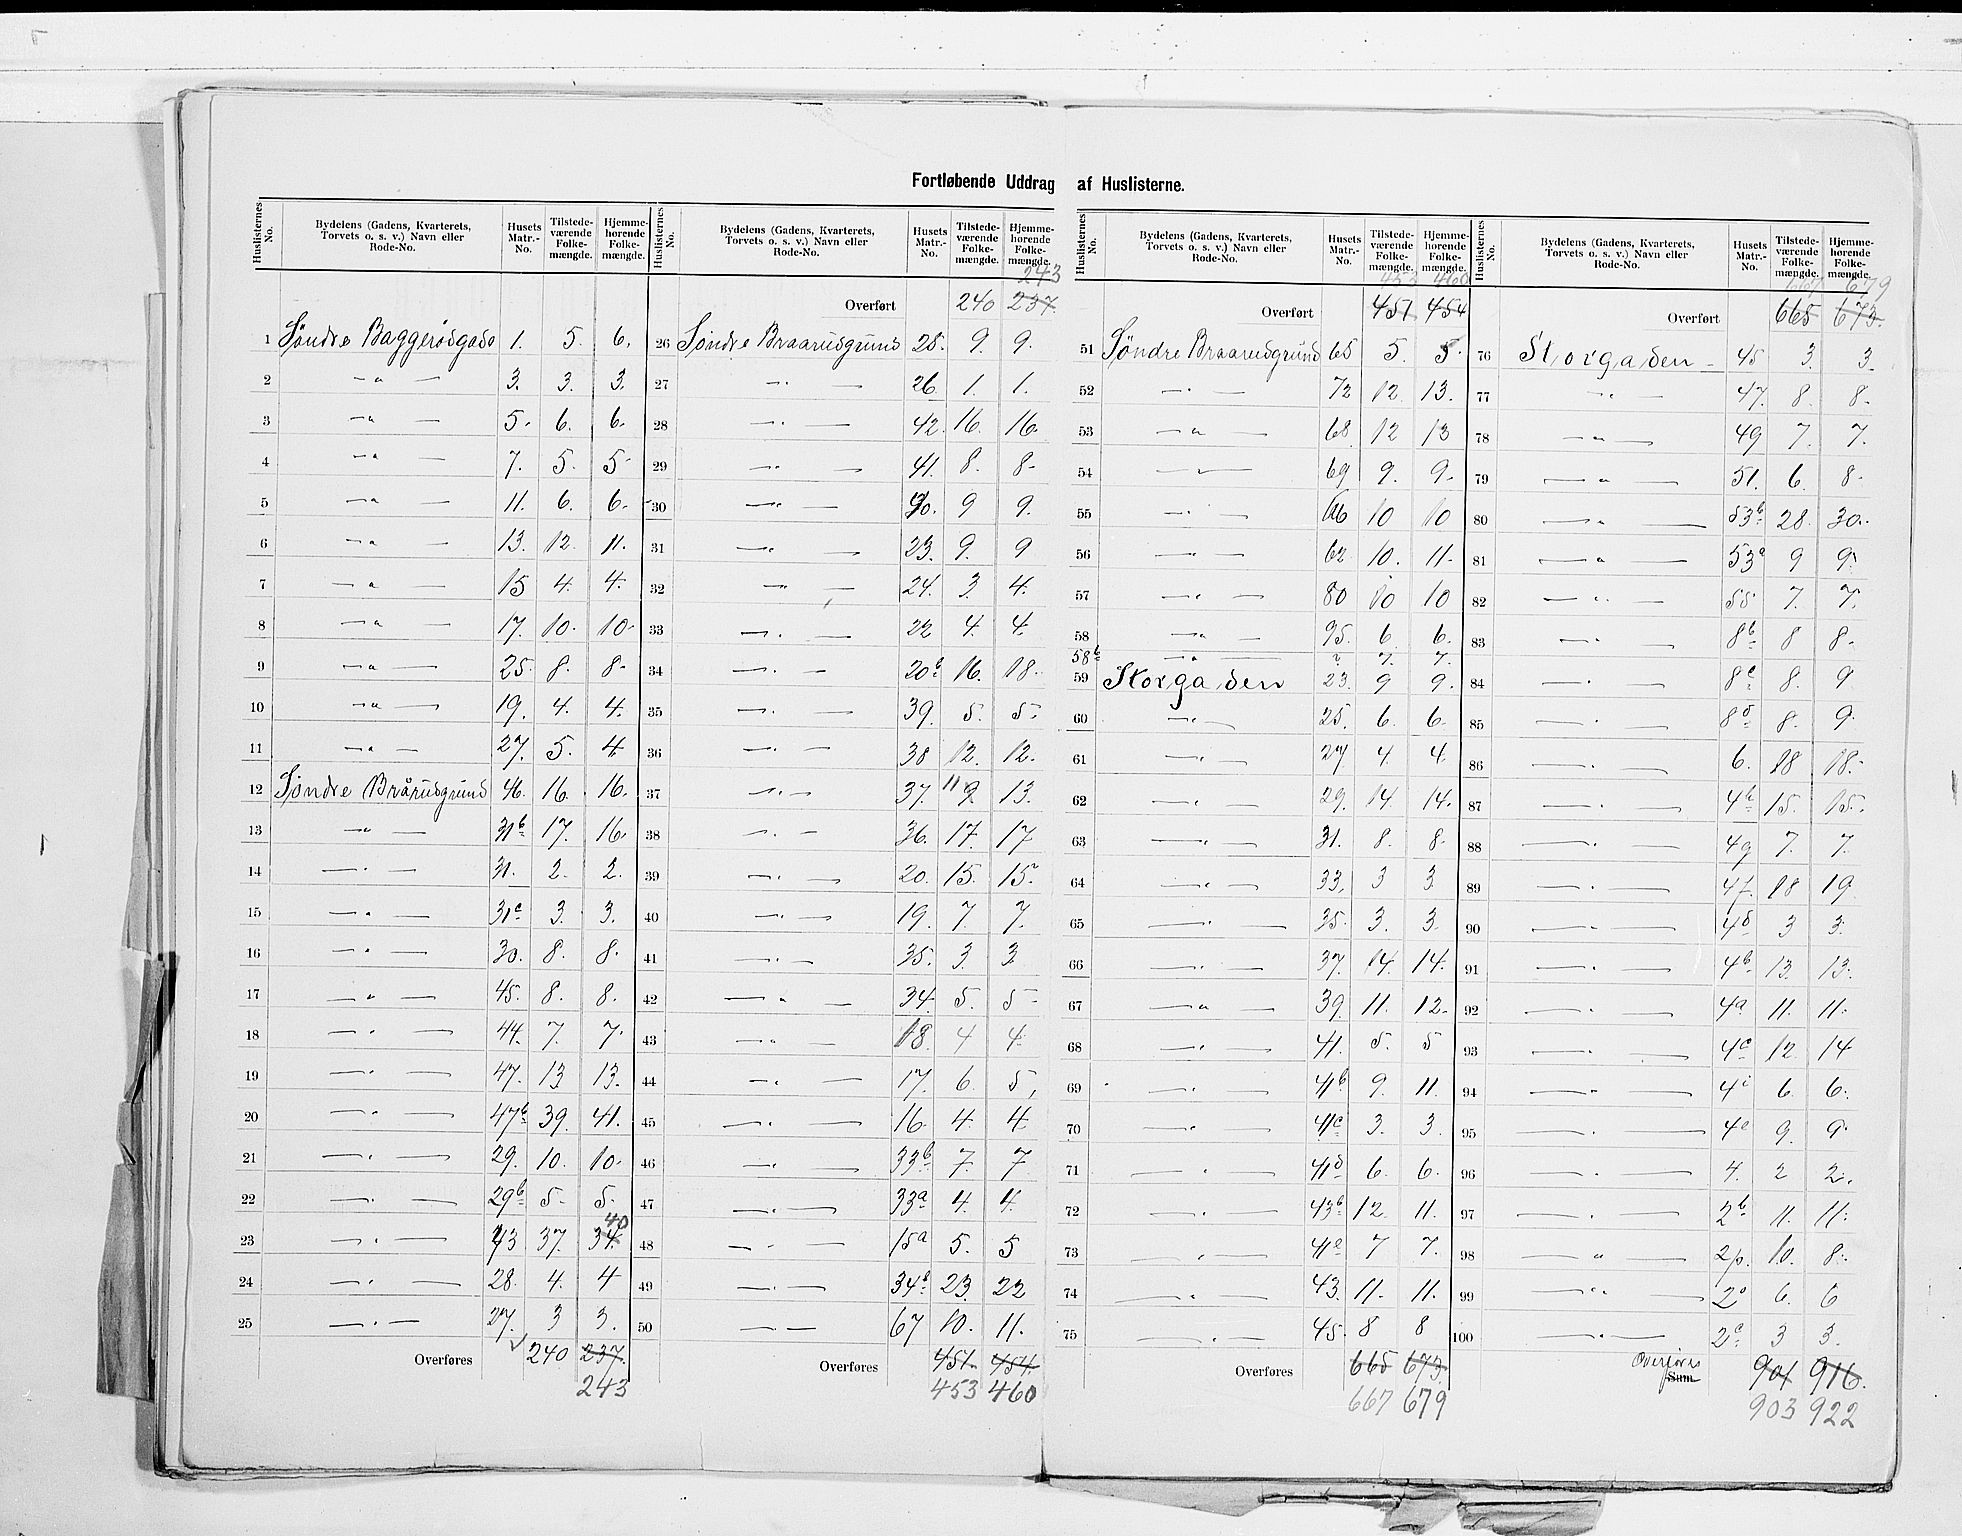 Fortløbende Uddrag af Huslisterne.
Huslisternes No. Bydelens (Gadens, Kvarterets, Torvets o. s. v.) Navn eller Rode-No. Husets Matr.-No. Tilstedeværende Folkemængde. Hjemmehørende Folkemængde.
1 Søndre Baggerødgade 1. 5. 6.
2 —"— 3. 3. 3.
3 —"— 5. 6. 6.
4 —"— 7. 5. 5
5 —"— 11. 6. 6.
6 —"— 13. 12. 11.
7 —"— 15 4. 4.
8 —"— 17. 10. 10.
9 —"— 25. 8. 8.
10 —"— 19. 4. 4.
11 —"— 27. 5. 4
12 Søndre Brårudgrund 46. 16. 16.
13 —"— 31b 17. 16.
14 —"— 31. 2. 2.
15 —"— 31c 3. 3.
16 —"— 30. 8. 8.
17 —"— 45. 8. 8.
18 —"— 44. 7. 7.
19 —"— 47. 13 13.
20 —"— 47b 39. 41.
21 —"— 29. 10. 10.
22 —"— 29b 5. 5.
23 —"— 43 37. 34. 40
24 —"— 28. 4. 4
25 —"— 27. 3 3.
Overføres 240 237.
243
Huslisternes No. Bydelens (Gadens, Kvarterets, Torvets o. s. v.) Navn eller Rode-No. Husets Matr.-No. Tilstedeværende Folkemængde. Hjemmehørende Folkemængde.
243
Overført 240 237.
26 Søndre Braarudgrund 25. 9. 9.
27 —"— 26. 1. 1.
28 —"— 42. 16. 16.
29 —"— 41. 8. 8.
30 —"— 40. 9 9.
31 —"— 23. 9. 9
32 —"— 24. 3. 4.
33 —"— 22 4. 4.
34 —"— 20b 16. 18.
35 —"— 39. 5. 5.
36 —"— 38 12. 12.
37 —"— 37. 11 9. 13.
38 —"— 36. 17. 17
39 —"— 20. 15. 15.
40 —"— 19. 7. 7.
41 —"— 35. 3. 3
42 —"— 34. 5. 5
43 —"— 18. 4 4.
44 —"— 17. 6. 5,
45 —"— 16. 4. 4.
46 —"— 33b 7. 7
47 —"— 33a 4. 4.
48 —"— 15a 5. 5
49 —"— 34b 23. 22
50 —"— 67 10. 11.
Overføres 451. 454.
453 460
Huslisternes No. Bydelens (Gadens, Kvarterets, Torvets o. s. v.) Navn eller Rode-No. Husets Matr.-No. Tilstedeværende Folkemængde. Hjemmehørende Folkemængde.
453 460
Overført 451 454
51 Søndre Braarudgrund 65 5. 5.
52 —"— 72 12. 13.
53 —"— 68. 12 13
54 —"— 69 9. 9.
55 —"— 66 10 10
56 —"— 62 10. 11.
57 —"— 80 10 10
58 —"— 95. 6. 6.
58b —"— ? 7. 7.
59 Storgaden 23. 9 9.
60 —"— 25. 6. 6.
61 —"— 27 4. 4.
62 —"— 29. 14. 14.
63 —"— 31. 8. 8.
64 —"— 33, 3 3
65 —"— 35. 3. 3.
66 —"— 37. 14. 14.
67 —"— 39. 11. 12.
68 —"— 41. 5. 5
69 —"— 41b 9. 11.
70 —"— 41c 3. 3.
71 —"— 41d 6. 6.
72 —"— 43b 12. 11.
73 —"— 41e 7 7.
74 —"— 43. 11. 11.
75 —"— 45. 8 8
Overføres 665 673.
667 679
Huslisternes No. Bydelens (Gadens, Kvarterets, Torvets o. s. v.) Navn eller Rode-No. Husets Matr.-No. Tilstedeværende Folkemængde. Hjemmehørende Folkemængde.
667 679
Overført 665 673.
76 Storgaden 45 3. 3.
77 —"— 47. 8. 8.
78 —"— 49 7. 7.
79 —"— 51. 6. 8.
80 —"— 53b 28. 30.
81 —"— 53a 9 9.
82 —"— 55 7. 7.
83 —"— 8b 8 8.
84 —"— 8c 8. 9
85 —"— 8d 8. 9.
86 —"— 6. 18 18.
87 —"— 4h 15. 15.
88 —"— 4g 7. 7.
89 —"— 4f. 18 19.
90 —"— 4d 3 3.
91 —"— 4b 13. 13.
92 —"— 4a 11. 11.
93 —"— 4c 12. 14
94 —"— 4i 6. 6.
95 —"— 4e 9. 9.
96 —"— 4. 2 2.
97 —"— 2b 11. 11.
98 —"— 2p. 10. 8.
99 —"— 2o 6. 6
100 —"— 2c 3 3.
Overføres
Sum 901 916.
903 922